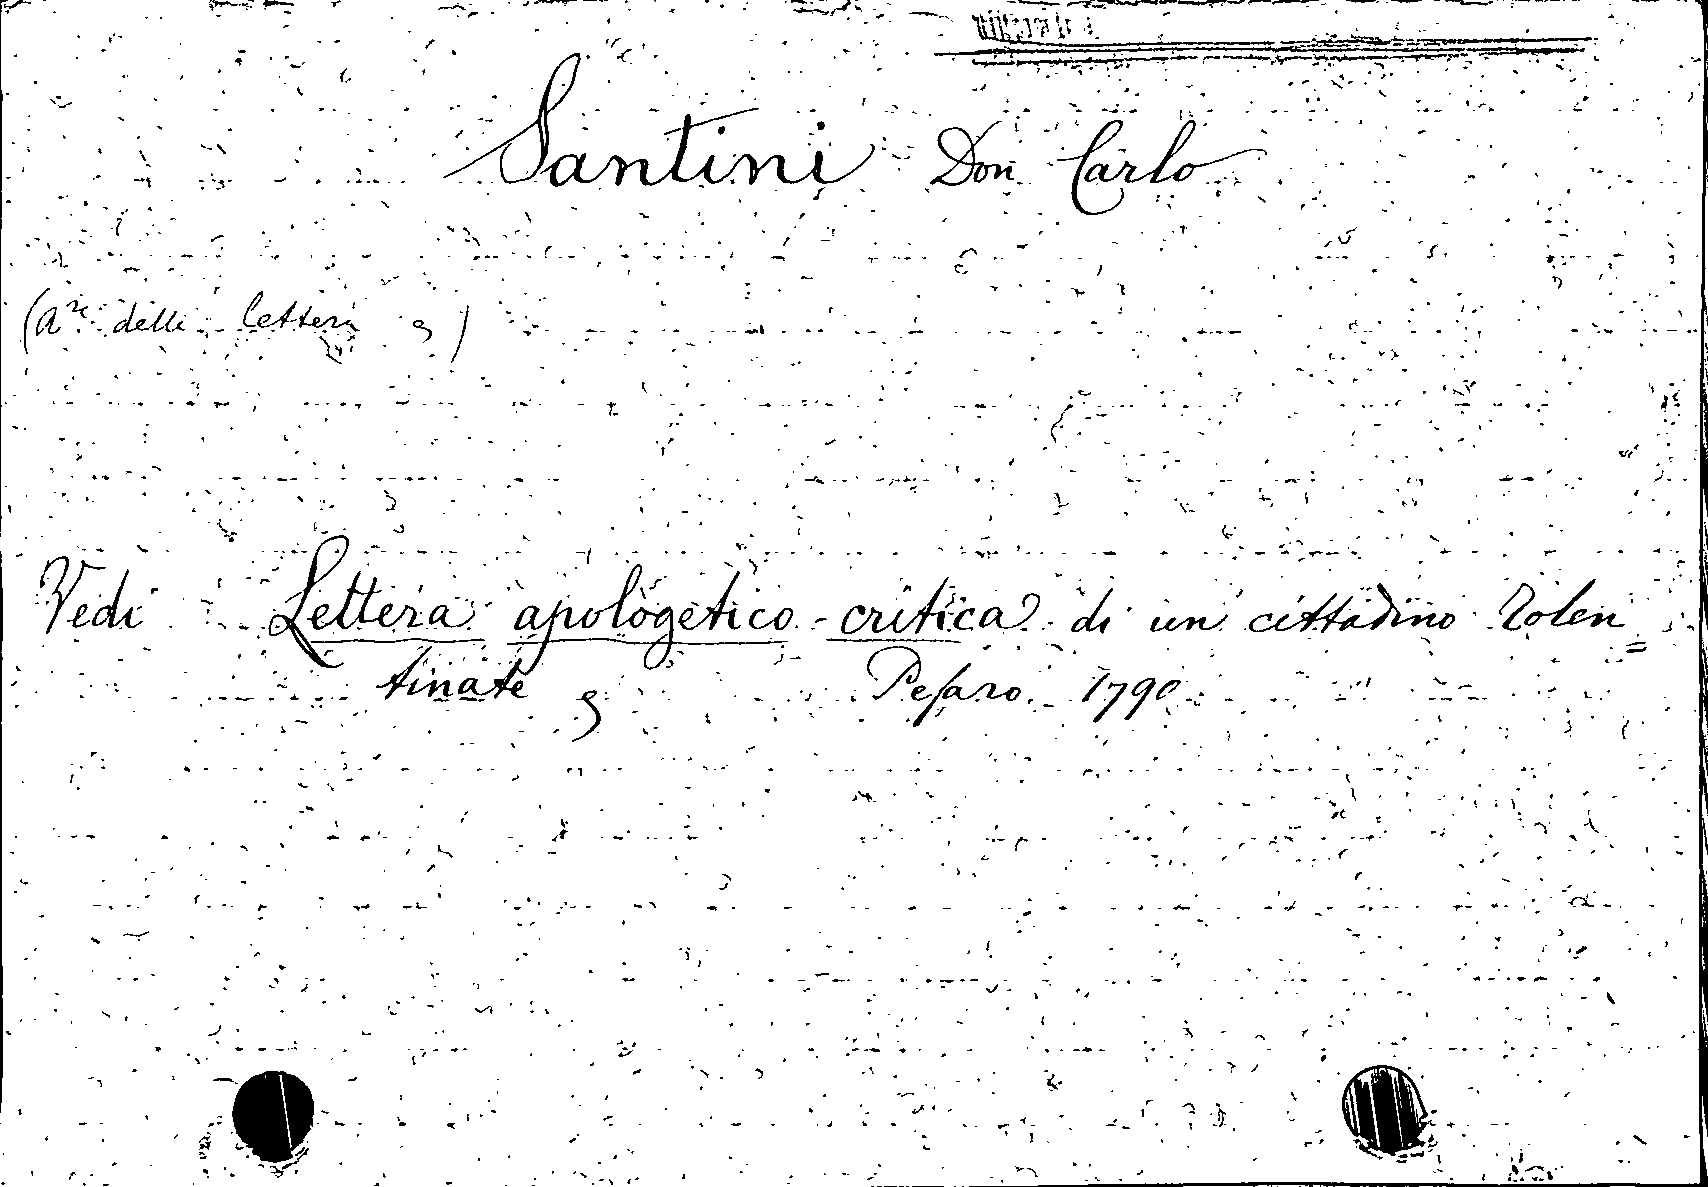 Santini Don Carlo
(a.re delle lettere 9)
Vedi Lettera apologetico-critica di un cittadino Tolen=
tinate 9 Pesaro 1790